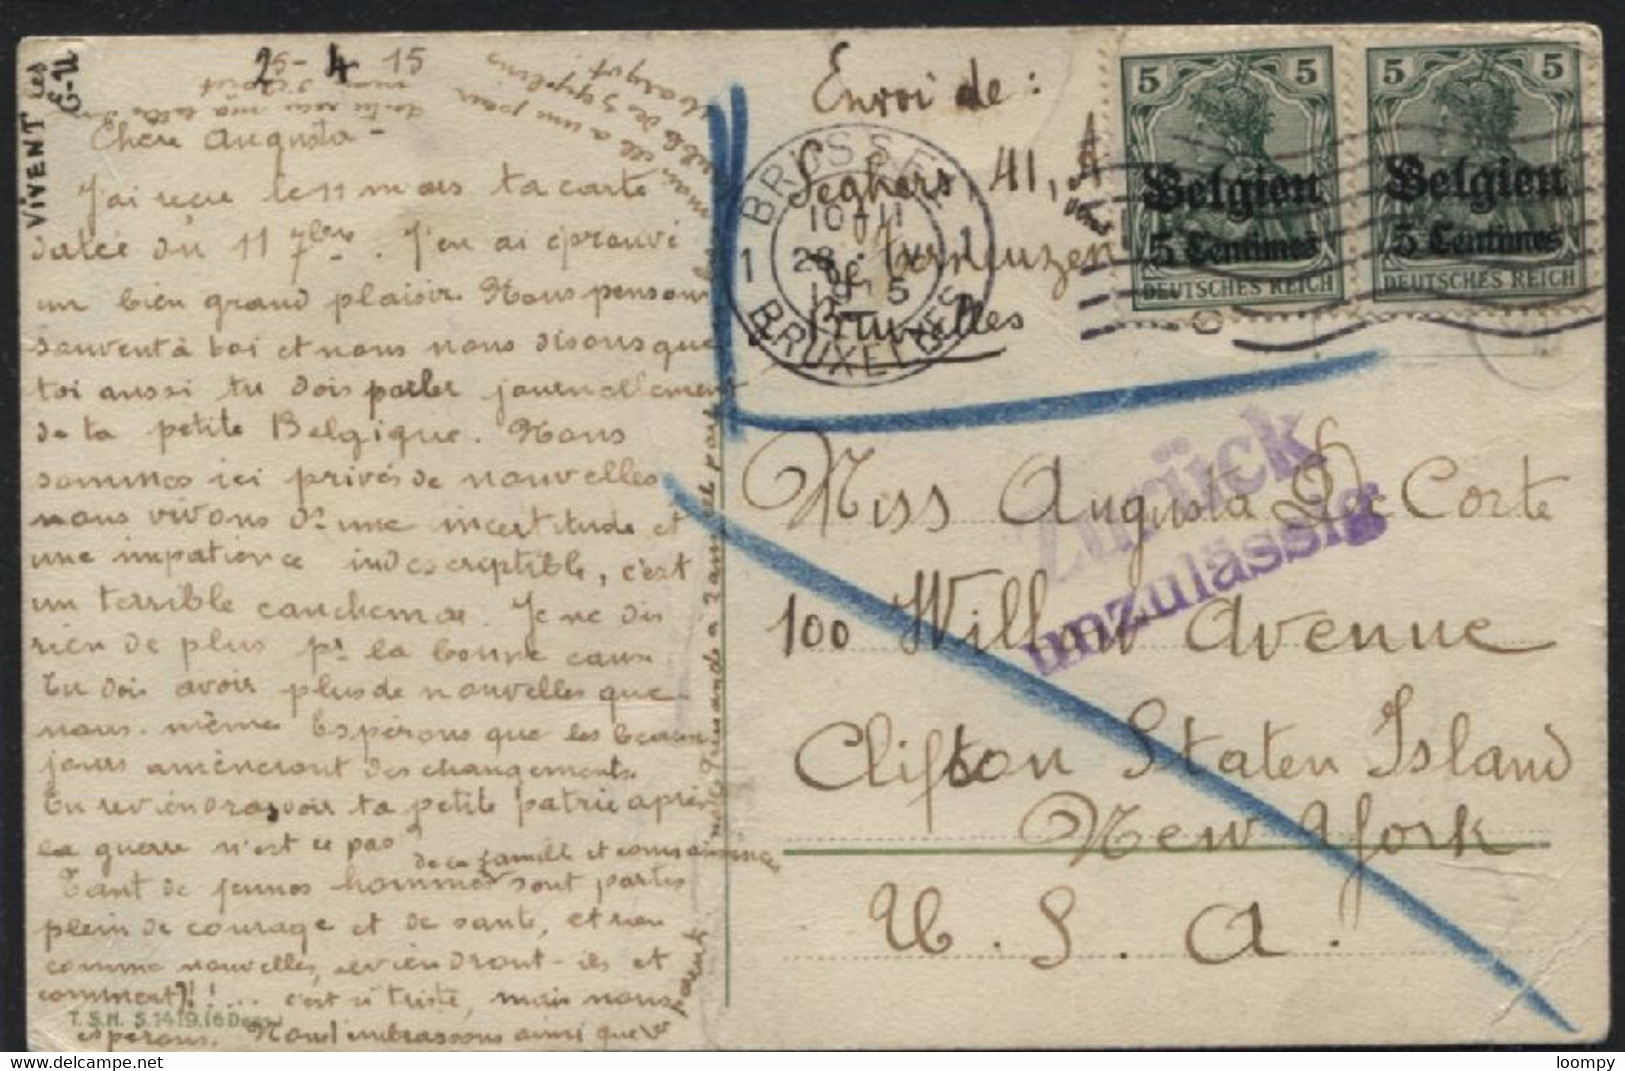 VIVENT les E-U
25-4-15
Chere Augusta-
J'ai reçu le 11 mars ta carte
datée du 11 7bre. J'en ai éprouvé
un bien grand plaisir. Nous pensons
souvent à toi et nous nous disons que
toi aussi tu dois parler journellement
de ta petite Belgique. Nous
sommes ici privés de nouvelles
nous vivons d'une incertitude et
une impatience indescriptible, c'est
un terrible cauchemar. Je ne dis
rien de plus pr la bonne cause
Tu dois avoir plus de nouvelles que
nous même Espérons que les beaux
jours amèneront des changements
Tu reviendras voir ta petite patrie après
la guerre n'est ce pas
de la famille et connaissance
Tant de jeunes hommes sont partis
plein de courage et de santé, et rien
comme nouvelles, reviendront-ils et
comment)!! ... c'est si triste, mais nous
espérons. Nous t'embrassons ainsi que
parents
T.S.N. S.1419.(6 Dess.)
Envoi de:
Seghers, 41, A
de Terneuzen
Bruxelles
BRUSSEL
1 1
BRUXELLES
5 5
Belgien
5 Centimes
DEUTSCHES REICH
5 5
Belgien
5 Centimes
DEUTSCHES REICH
Zurück
unzulässig
Miss Augusta De Corte
100 Willow Avenue
Clifton Staten Island
New York
U. S. A.
loompy